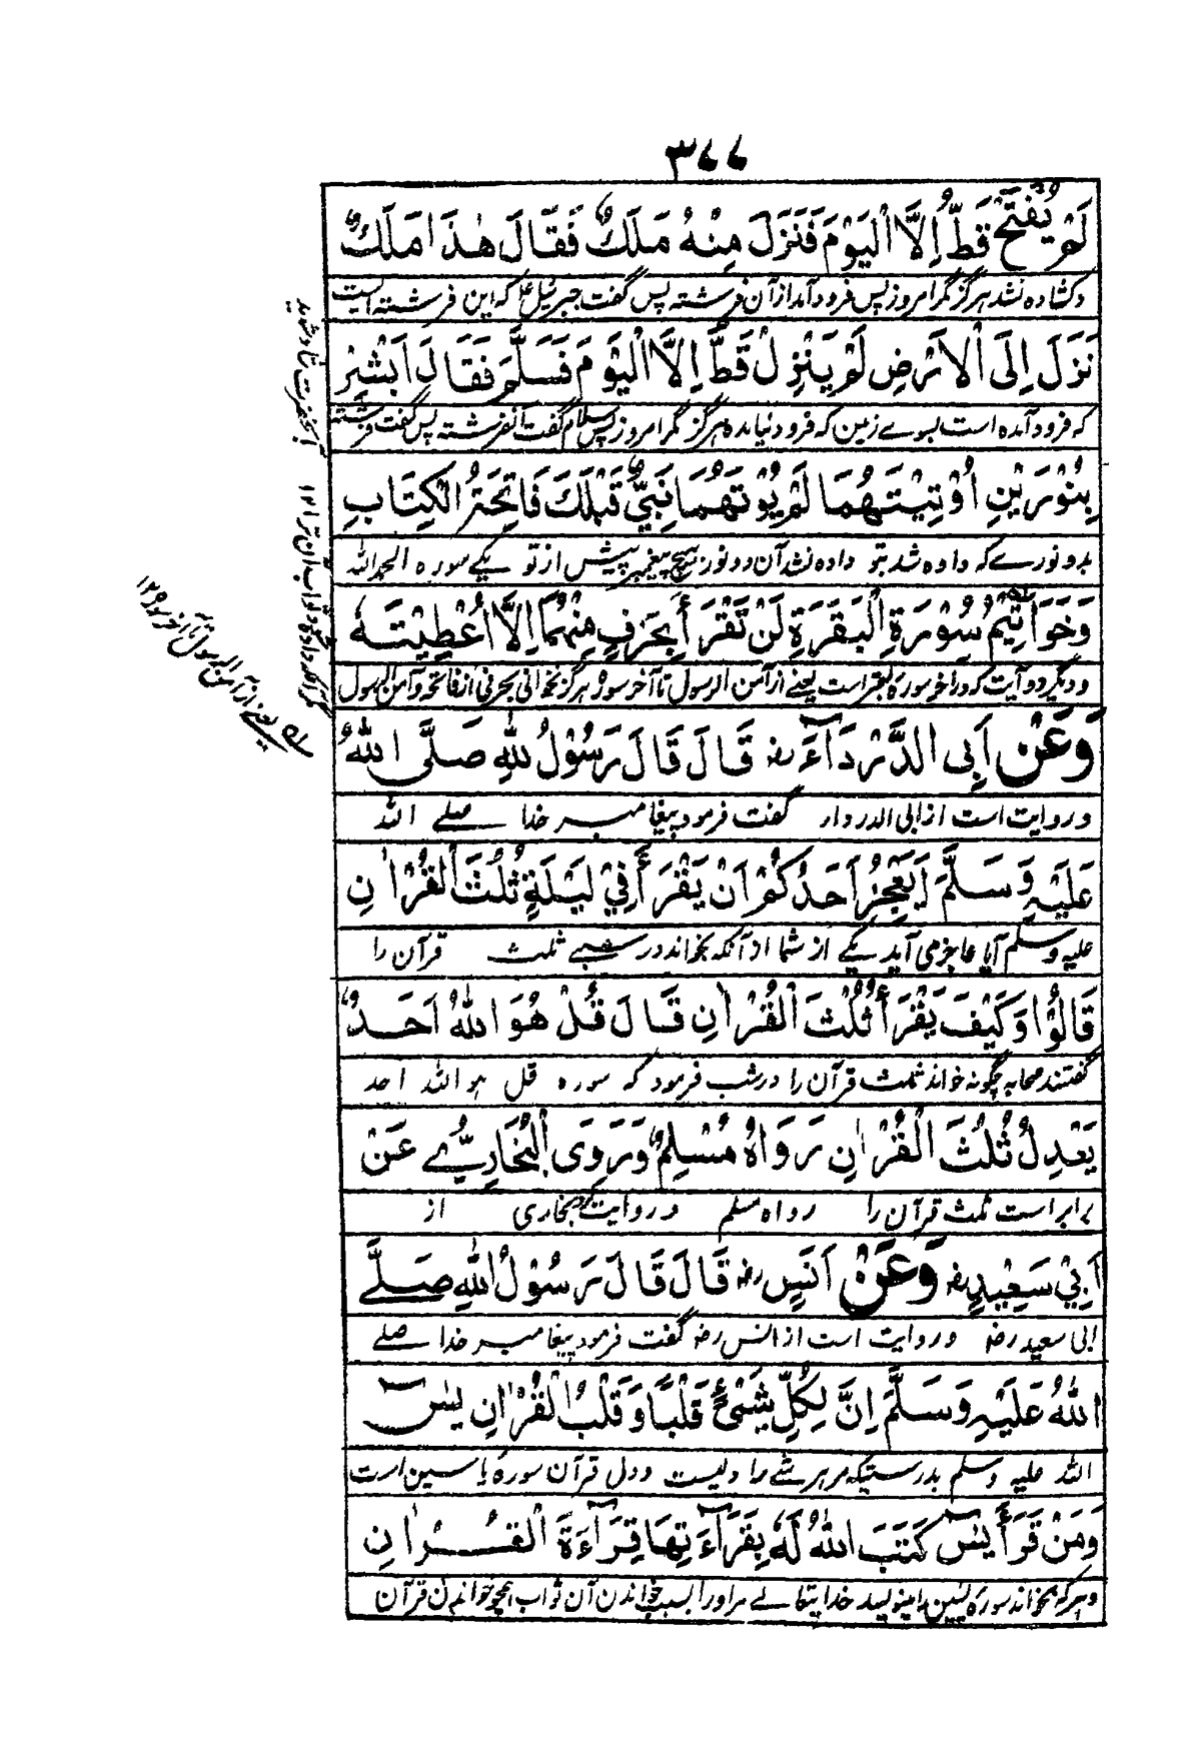 ۳۷۷
لَمْ يُفْتَحْ قَطُّ اِلَّا الْيَوْمَ فَنَزَلَ مِنْهُ مَلَكٌ فَقَالَ هٰذَا مَلَكٌ
و کشاده نشد هرگز مگر امروز پس فرود آمد از آن فرشته پس گفت جبرئیل که این فرشته ایست
نَزَلَ اِلَى الْاَرْضِ لَمْ يَنْزِلْ قَطُّ اِلَّا الْيَوْمَ فَسَلَّمَ فَقَالَ اَبْشِرْ
که فرود آمده است بسوے زمین که فرود نیامده هرگز مگر امروز پس سلام گفت آنفرشته پس گفت فرشته
بِنُوْرَيْنِ اُوْتِيْتَهُمَا لَمْ يُؤْتَهُمَا نَبِيٌّ قَبْلَكَ فَاتِحَةُ الْكِتَابِ
بدو نورے که داده شد بتو داده نشد آن دو نور هیچ پیغمبر پیش از تو یکے سوره الحمد الله
وَخَوَاتِيْمُ سُوْرَةِ الْبَقَرَةِ لَنْ تَقْرَأَ بِحَرْفٍ مِنْهُمَا اِلَّا اُعْطِيْتَهٗ
و دیگر دو آیت که در آخر سوره بقر است یعنے از آمن الرسول تا آخر سوره هرگز نخوانی بحرفی از فاتحه و آمن الرسول
وَعَنْ اَبِى الدَّرْدَآءَ رض قَالَ قَالَ رَسُوْلُ اللهِ صَلَّى اللهُ
و روایت است از ابی الدردار گفت فرمود پیغامبر خدا صلے الله
عَلَيْهِ وَسَلَّمَ اَيَعْجِزُ اَحَدُكُمْ اَنْ يَقْرَأَ فِيْ لَيْلَةٍ ثُلُثَ الْقُرْاٰنِ
علیه وسلم آیا عاجز می آید یکے از شما از آنکه بخواند در شبے ثلث قرآن را
قَالُوْا وَكَيْفَ يَقْرَأُ ثُلُثَ الْقُرْاٰنِ قَالَ قُلْ هُوَ اللهُ اَحَدٌ
گفتند صحابه چگونه خواند ثلث قرآن را در شب فرمود که سوره قل هو الله احد
يَعْدِلُ ثُلُثَ الْقُرْاٰنِ رَوَاهُ مُسْلِمٌ وَرَوَى الْبُخَارِيُّ عَنْ
برابر است ثلث قرآن را رواه مسلم و روایت کرد بخاری از
اَبِيْ سَعِيْدٍ رض وَعَنْ اَنَسٍ رض قَالَ قَالَ رَسُوْلُ اللهِ صَلَّى
ابی سعید رض و روایت است از انس رض گفت فرمود پیغامبر خدا صلے
اللهُ عَلَيْهِ وَسَلَّمَ اِنَّ لِكُلِّ شَيْءٍ قَلْبًا وَقَلْبُ الْقُرْاٰنِ يٰسٓ
الله علیه وسلم بدرستیکه مر هر شے را دلیست و دل قرآن سوره یاسین است
وَمَنْ قَرَأَ يٰسٓ كَتَبَ اللهُ لَهٗ بِقَرَآءَتِهَا قِرَآءَةَ الْقُرْاٰنِ
و هر که بخواند سوره یسین را بنویسد خدایتعالے مر او را بسبب خواندن آن ثواب همچو خواندن قرآن
آنحضرت شاد شوید
مگر آنکه داده شود ثواب آن ترا ۱۲
له یعنے از آمن الرسول تا آخر سوره ۱۲